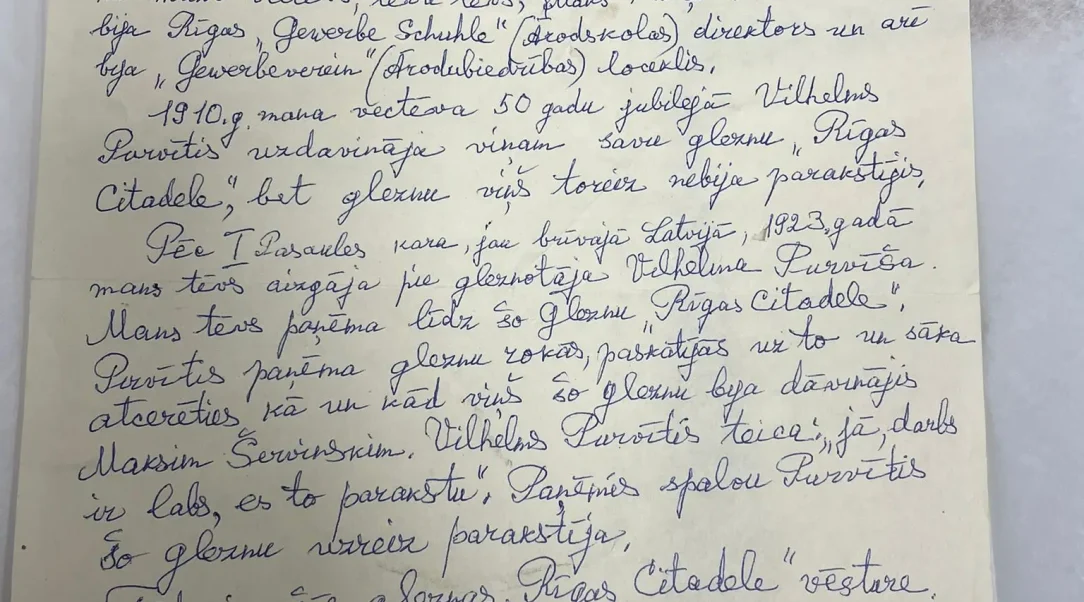 bija Rīgas „Gewerbe Schuhle" (Arodskolas) direktors un arī
bija „Gewerbeverein" (Arodubiedrības) loceklis.
1910.g. mana vectēva 50 gadu jubilejā Vilhelms
Purvītis uzdavināja viņam savu gleznu „Rīgas
Citadele", bet gleznu viņš toreiz nebija parakstījis.
Pēc I Pasaules kara, jau brīvajā Latvijā, 1923.gadā
mans tēvs aizgāja pie gleznotāja Vilhelma Purvīša.
Mans tēvs paņēma līdz šo gleznu „Rīgas Citadele".
Purvītis paņēma gleznu rokās, paskatījās uz to un sāka
atcerēties kā un kād viņš šo gleznu bija dāvinājis
Maksim Šervinskim. Vilhelms Purvītis teica: „jā, darbs
ir labs, es to parakstu". Paņēmis spalvu Purvītis
šo gleznu uzreiz parakstīja.
„Rīgas Citadele" vēsture.